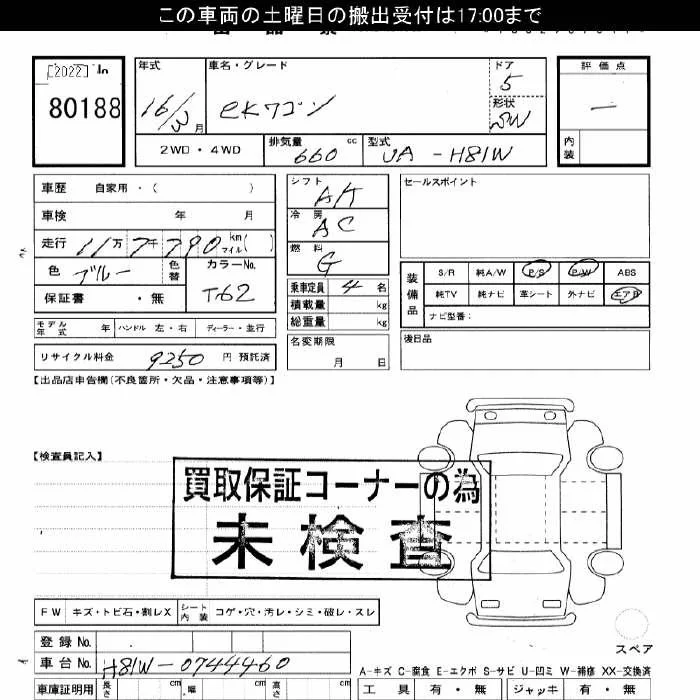 この車両の土曜日の搬出受付は17:00まで
[2022] 
80188
年式
16/3月
車名・グレード
eKワゴン
ドア
5
形状
SW
評価点
―
内装
2WD・4WD
排気量 660 cc
型式 UA-H81W
車歴 自家用・( )
車検 年 月
走行 11万7千790 km マイル( )
色 ブルー
色替
カラーNo. T62
保証書 ・無
シフト
AT
冷房
AC
燃料
G
乗車定員 4 名
積載量 kg
総重量 kg
セールスポイント
装備品
S/R 純A/W P/S P/W ABS
純TV 純ナビ 革シート 外ナビ エアB
ナビ型番:
モデル年式 年 ハンドル 左・右 ディーラー・並行
リサイクル料金 9250 円 預託済
名変期限
月 日
後日品
【出品店申告欄(不良箇所・欠品・注意事項等)】
【検査員記入】
買取保証コーナーの為
未検査
FW キズ・トビ石・割レX シート内装 コゲ・穴・汚レ・シミ・破レ・スレ
スペア
登録No.
車台No. H81W-0744460
A-キズ C-腐食 E-エクボ S-サビ U-凹ミ W-補修 XX-交換済
車庫証明用 長さ cm 幅 cm 高さ cm
工具 有・無 ジャッキ 有・無